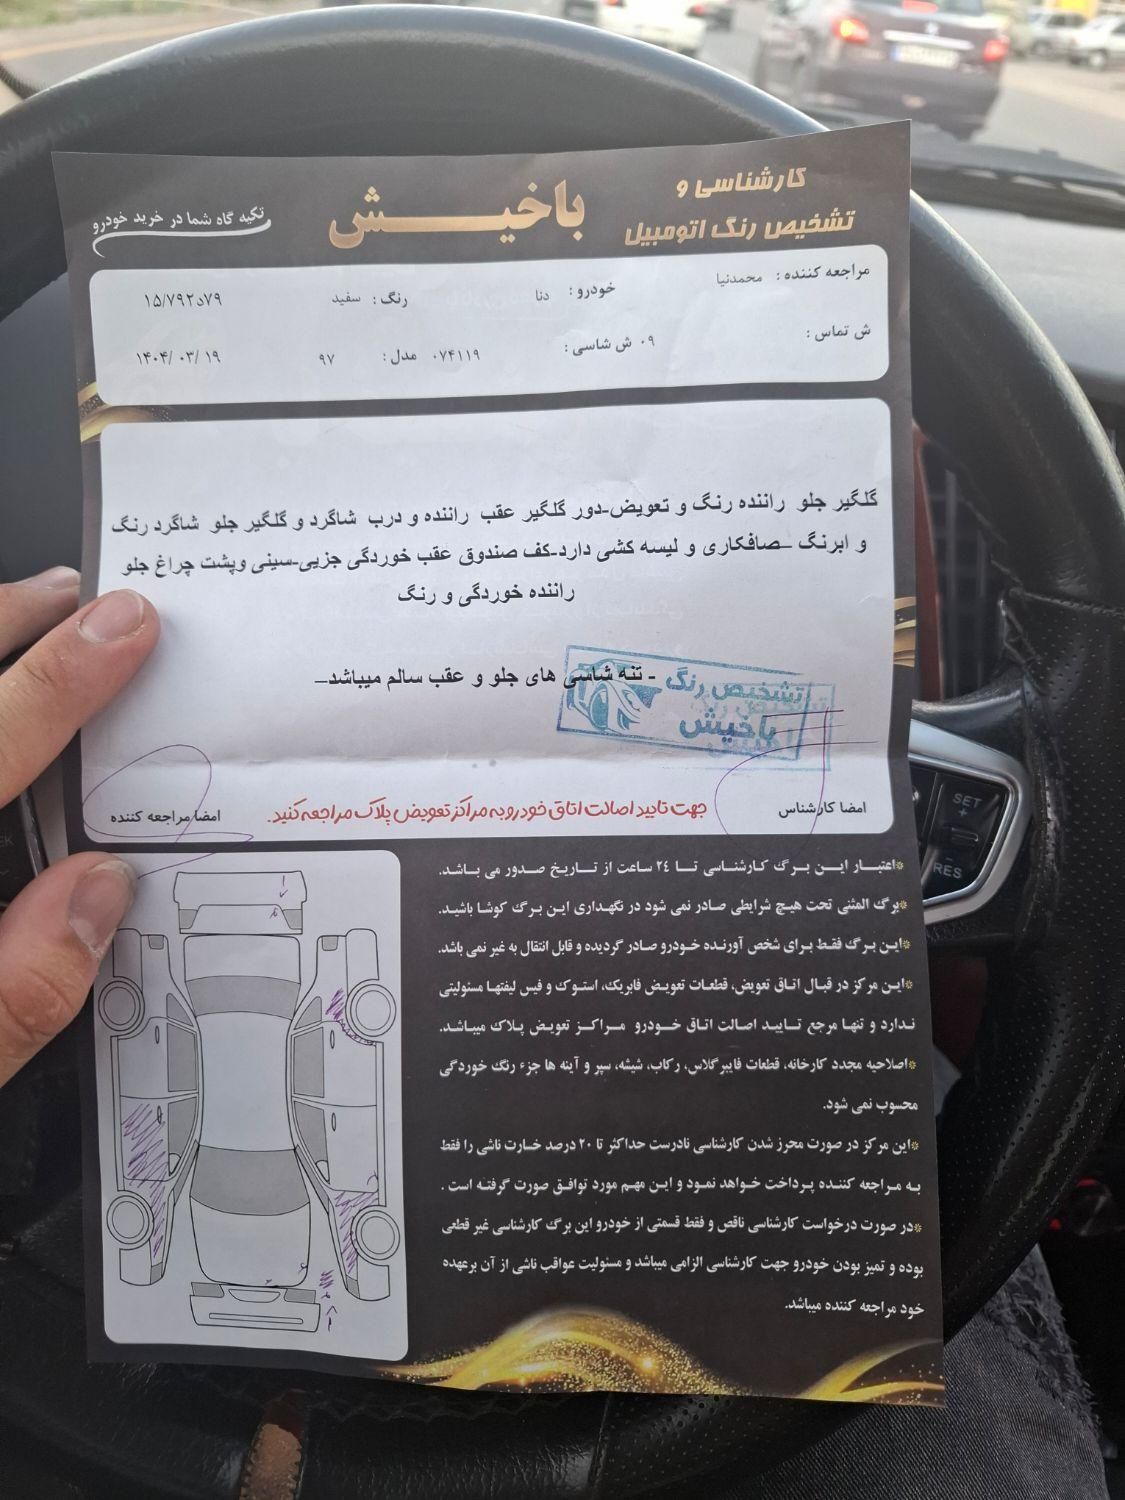 کارشناسی و
تشخیص رنگ اتومبیل
باخیش
تکیه گاه شما در خرید خودرو
مراجعه کننده : محمدنیا خودرو : دنا رنگ : سفید ۷۹د۱۵/۷۹۲
ش تماس : ۰۹ ش شاسی : ۰۷۴۱۱۹ مدل : ۹۷ ۱۴۰۴/ ۰۳/ ۱۹
گلگیر جلو راننده رنگ و تعویض-دور گلگیر عقب راننده و درب شاگرد و گلگیر جلو شاگرد رنگ
و ابرنگ –صافکاری و لیسه کشی دارد-کف صندوق عقب خوردگی جزیی-سینی وپشت چراغ جلو
راننده خوردگی و رنگ
- تنه شاسی های جلو و عقب سالم میباشد–
تشخیص رنگ
باخیش
امضا کارشناس
جهت تایید اصالت اتاق خودرو به مراکز تعویض پلاک مراجعه کنید.
امضا مراجعه کننده
*اعتبار این برگ کارشناسی تا ۲۴ ساعت از تاریخ صدور می باشد.
*برگ المثنی تحت هیچ شرایطی صادر نمی شود در نگهداری این برگ کوشا باشید.
*این برگ فقط برای شخص آورنده خودرو صادر گردیده و قابل انتقال به غیر نمی باشد.
*این مرکز در قبال اتاق تعویض، قطعات تعویض فابریک، استوک و فیس لیفتها مسئولیتی
ندارد و تنها مرجع تایید اصالت اتاق خودرو مراکز تعویض پلاک میباشد.
*اصلاحیه مجدد کارخانه، قطعات فایبرگلاس، رکاب، شیشه، سپر و آینه ها جزء رنگ خوردگی
محسوب نمی شود.
*این مرکز در صورت محرز شدن کارشناسی نادرست حداکثر تا ۲۰ درصد خسارت ناشی را فقط
به مراجعه کننده پرداخت خواهد نمود و این مهم مورد توافق صورت گرفته است .
*در صورت درخواست کارشناسی ناقص و فقط قسمتی از خودرو این برگ کارشناسی غیر قطعی
بوده و تمیز بودن خودرو جهت کارشناسی الزامی میباشد و مسئولیت عواقب ناشی از آن برعهده
خود مراجعه کننده میباشد.
SET
+
-
RES